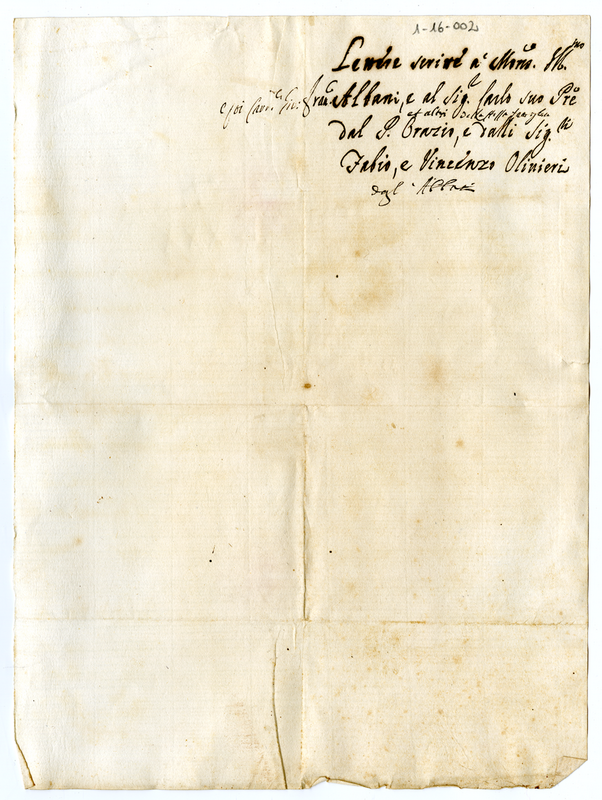 1-16-002
Lettere scritte à Mons.re Ill.mo
e poi Card.le Gio: Fran.co Albani, e al Sig.r Carlo suo Pre
et altri
dal P. Orazio, e dalli Sig.ri
Fabio, e Vincenzo Olivieri
degl'Abbati